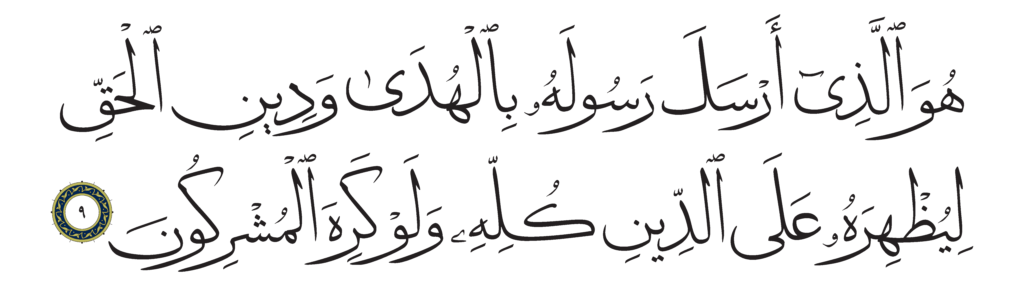 هُوَ ٱلَّذِىٓ أَرْسَلَ رَسُولَهُۥ بِٱلْهُدَىٰ وَدِينِ ٱلْحَقِّ
لِيُظْهِرَهُۥ عَلَى ٱلدِّينِ كُلِّهِۦ وَلَوْ كَرِهَ ٱلْمُشْرِكُونَ ٩